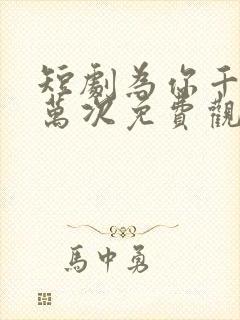 短劇為你千
萬次免費觀
馬中勇